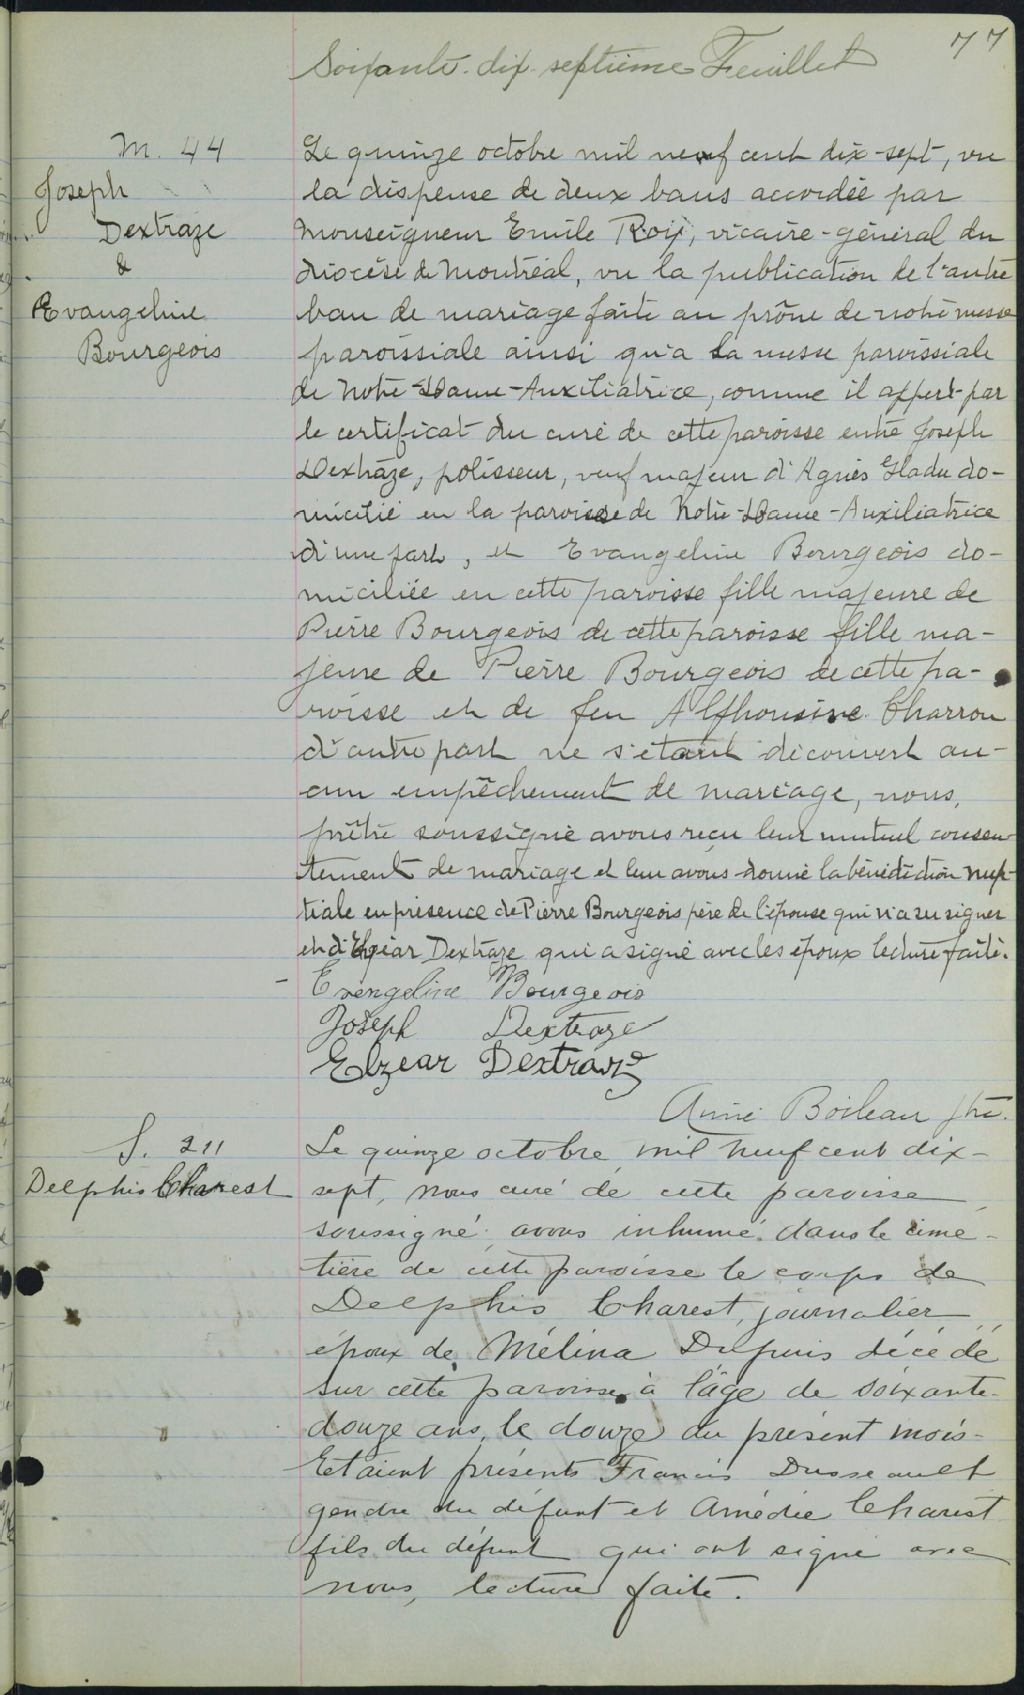 77
Soixante-dix-septième Feuillet
M. 44
Joseph
Dextraze
&
Evangeline
Bourgeois
Le quinze octobre mil neuf cent dix-sept, vu
la dispense de deux bans accordée par
Monseigneur Emile Roy, vicaire-général du
diocèse de Montréal, vu la publication de l'autre
ban de mariage faite au prône de notre messe
paroissiale ainsi qu'a la messe paroissiale
de Notre-Dame-Auxiliatrice, comme il appert par
le certificat du curé de cette paroisse entre Joseph
Dextraze, polisseur, veuf majeur d'Agnès Gladu do-
micilié en la paroisse de Notre-Dame-Auxiliatrice
d'une part, et Evangeline Bourgeois do-
miciliée en cette paroisse fille majeure de
Pierre Bourgeois de cette paroisse fille ma-
jeure de Pierre Bourgeois de cette pa-
roisse et de feu Alphonsine Charron
d'autre part ne s'étant découvert au-
cun empêchement de mariage, nous,
prêtre soussigné avons reçu leur mutuel consen
tement de mariage et leur avons donné la bénédiction nup-
tiale en présence de Pierre Bourgeois père de l'épouse qui n'a su signer
et d'Elzéar Dextraze qui a signé avec les époux lecture faite.
Evengeline Bourgeois
Joseph Dextraze
Elzear Dextraze
Aimé Boileau ptre.
S. 211
Delphis Charest
Le quinze octobre mil neuf cent dix-
sept, nous curé de cette paroisse
soussigné, avons inhumé dans le cime-
tière de cette paroisse le corps de
Delphis Charest, journalier,
époux de Mélina Dupuis décédé
sur cette paroisse à l'âge de soixante-
douze ans, le douze du présent mois-
Etaient présents Francis Dusseault
gendre du défunt et Amédée Charest
fils du défunt qui ont signé avec
nous, lecture faite.